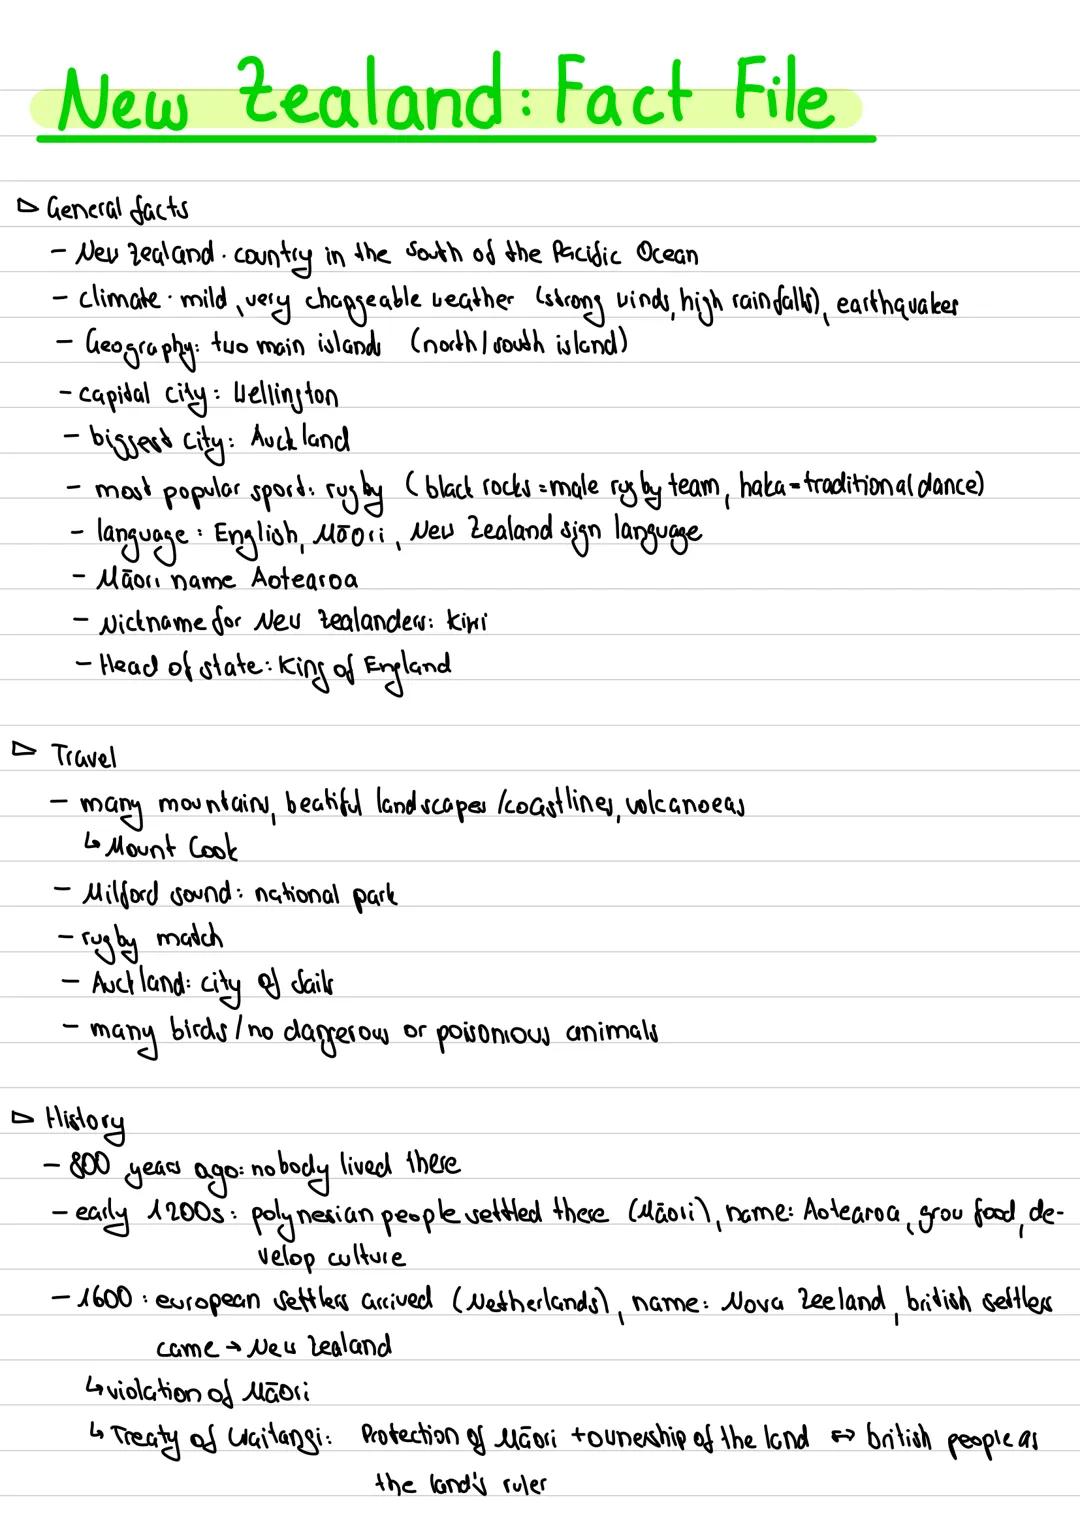 New Zealand: Fact File
▷ General facts
- New Zealand: country in the South of the Pacific Ocean
- climate: mild, very changeable weather (strong winds, high rainfalls), earthquakes
- Geography: two main islands (north/south island)
- capital city: Wellington
- biggest city: Auckland
- most popular sport: rugby (black rocks = male rugby team, haka = traditional dance)
- language: English, Māori, New Zealand sign language
- Māori name Aotearoa
- Nickname for New Zealanders: Kiwi
- Head of state: King of England
▷ Travel
- many mountains, beatiful landscapes/coastlines, volcanoeas
↳ Mount Cook
- Milford sound: national park
- rugby match
- Auckland: city of Sails
- many birds/no dangerous or poisonious animals
▷ History
- 800 years ago: nobody lived there
- early 1200s: polynesian people settled there (Māori), name: Aotearoa, grow food, de-
velop culture
- 1600: european settlers arrived (Netherlands), name: Nova Zeeland, british settlers
came → New Zealand
↳ violation of Māori
↳ Treaty of Waitangi: Protection of Māori + ownership of the land ⇔ british people as
the land's ruler